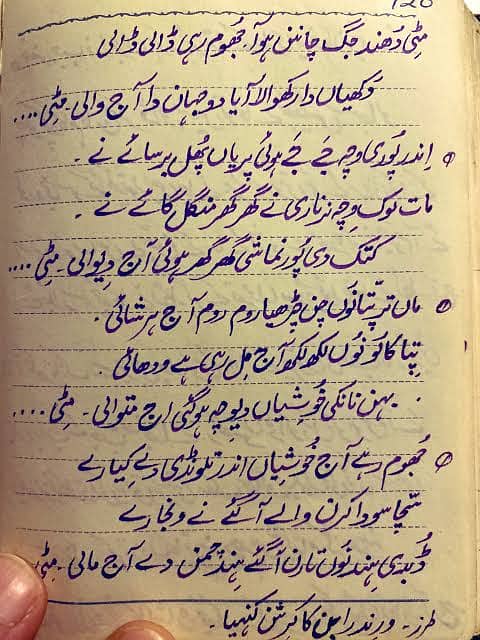 120
مٹی دُھند جگ چانن ہوآ۔ جُھوم رہی ڈالی ڈالی
دُکھیاں دا رکھوالا آیا دو جہان دا آج والی۔ مِٹی....
اِندر پُوری وچہ جَے جَے ہوئی پریاں پُھل برسائے نے ۔
مات لوک وِچہ نر ناری نے گھر گھر منگل گائے نے ۔
کتک دی پُورنماشی گھر گھر ہوئی آج دِیوالی۔ مِٹی....
ماں ترپتا نُوں چن چڑھیا روم روم آج ہرشائی ۔
پِتا کالو نُوں لکھ لکھ آج مِل رہی ہے ودھائی ۔
بہن نانکی خُوشیاں دیوچہ ہوگئی اج متوالی ۔ مِٹی....
جُھوم رہے آج خُوشیاں اندر تلونڈی دے کیارے
سّچا سودا کرن والے آگئے نے ونجارے
ڈُبدی ہند نُوں تارن آگئے ہِند چمن دے آج مالی ۔ مِٹی
طرز۔ ورندرابن کا کرشن کنہیا ۔